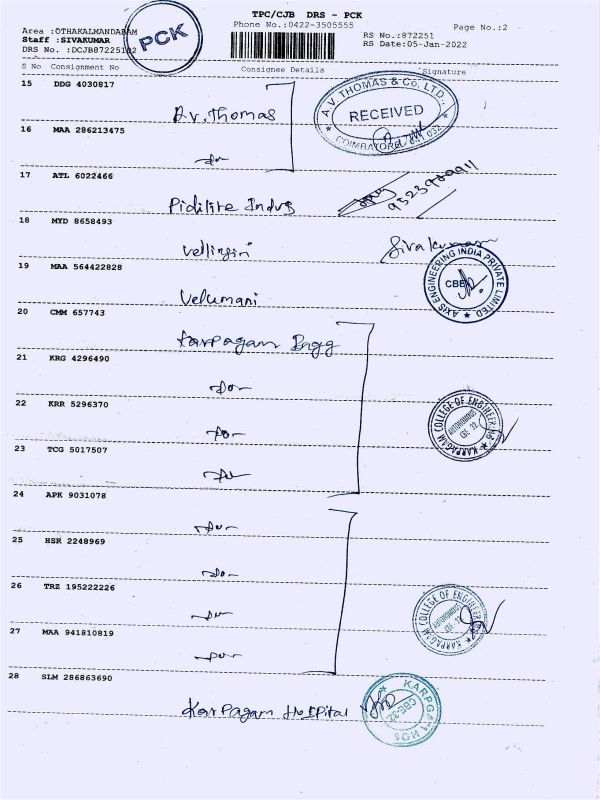 TPC/CJB DRS - PCK
Phone No.:0422-3505555
Page No.:2
Area :OTHAKALMANDABAM
Staff :SIVAKUMAR
DRS No. :DCJB87225102
PCK
RS No.:872251
RS Date:05-Jan-2022
S No Consignment No Consignee Details Signature
15 DDG 4030817
A.V.Thomas
A.V. THOMAS & Co. LTD.,
RECEIVED
COIMBATORE - 641 032
16 MAA 286213475
17 ATL 6022466
Pidilite Indus
18 MYD 8658493
Vellingiri
Sivakumar
19 MAA 564422828
Velumani
AXIS ENGINEERING INDIA PRIVATE LIMITED
CBE
20 CMM 657743
Karpagam Engg
21 KRG 4296490
22 KRR 5296370
KARPAGAM COLLEGE OF ENGINEERING
AUTONOMOUS
CBE-32
23 TCG 5017507
24 APK 9031078
25 HSR 2248969
26 TRZ 195222226
KARPAGAM COLLEGE OF ENGINEERING
AUTONOMOUS
CBE-32
27 MAA 941810819
28 SLM 286863690
Karpagam Hospital
CBE-32